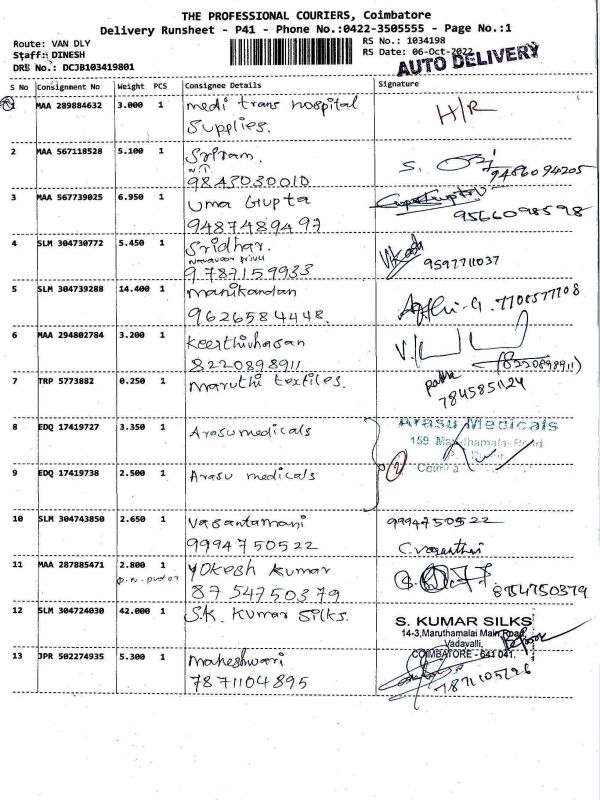 THE PROFESSIONAL COURIERS, Coimbatore
Delivery Runsheet - P41 - Phone No.:0422-3505555 - Page No.:1
Route: VAN DLY
RS No.: 1034198
Staff: DINESH
RS Date: 06-Oct-2022
DRS No.: DCJB103419801
AUTO DELIVERY
S No Consignment No Weight PCS Consignee Details Signature
MAA 289884632 3.000 1 medi trans hospital
Supplies.
H/R
2 MAA 567118528 5.100 1 Sriram.
9843030010
S. 9486094205
3 MAA 567739025 6.950 1 Uma Gupta
9487489497
9566098598
4 SLM 304730772 5.450 1 Sridhar.
9787159933
9597711037
5 SLM 304739288 14.400 1 Manikandan
9626584448.
7708577708
6 MAA 294802784 3.200 1 Keerthivhasan
8220898911
(8220898911)
7 TRP 5773882 0.250 1 Maruthi textiles.
7845851124
8 EDQ 17419727 3.350 1 Arasu medicals
Arasu Medicals
159
Road
9 EDQ 17419738 2.500 1 Arasu medicals
2
10 SLM 304743850 2.650 1 Vasantamani
9994750522
9994750522
C. Vasanthi
11 MAA 287885471 2.800 1 Yokesh Kumar
8754750379
8754750379
12 SLM 304724030 42.000 1 S.K. Kumar Silks.
S. KUMAR SILKS
14-3,Maruthamalai Main Road,
Vadavalli,
COIMBATORE - 641 041.
13 JPR 502274935 5.300 1 Maheshwari
7871104895
7871105296